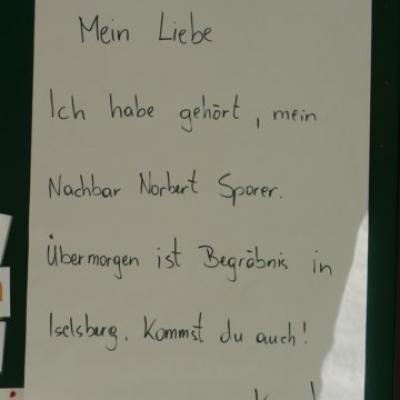 Mein Liebe
Ich habe gehört, mein
Nachbar Norbert Sporer.
Übermorgen ist Begräbnis in
Iselsburg. Kommst du auch!